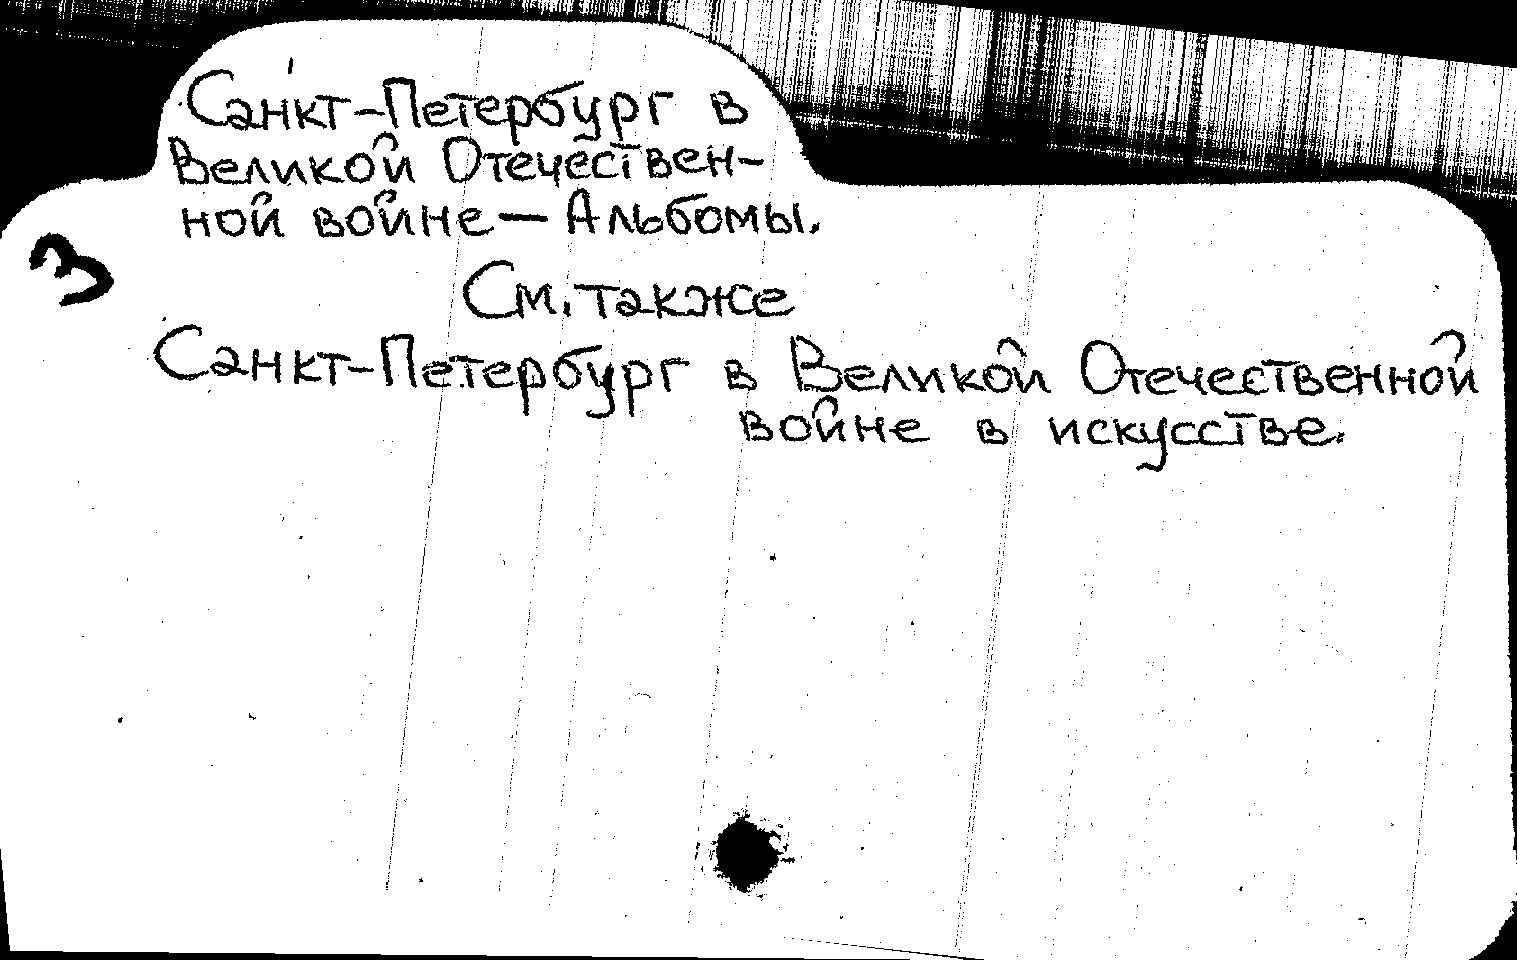 Санкт-Петербург в
Великой Отечествен-
ной войне — Альбомы.
3
См. также
Санкт-Петербург в Великой Отечественной
войне в искусстве.